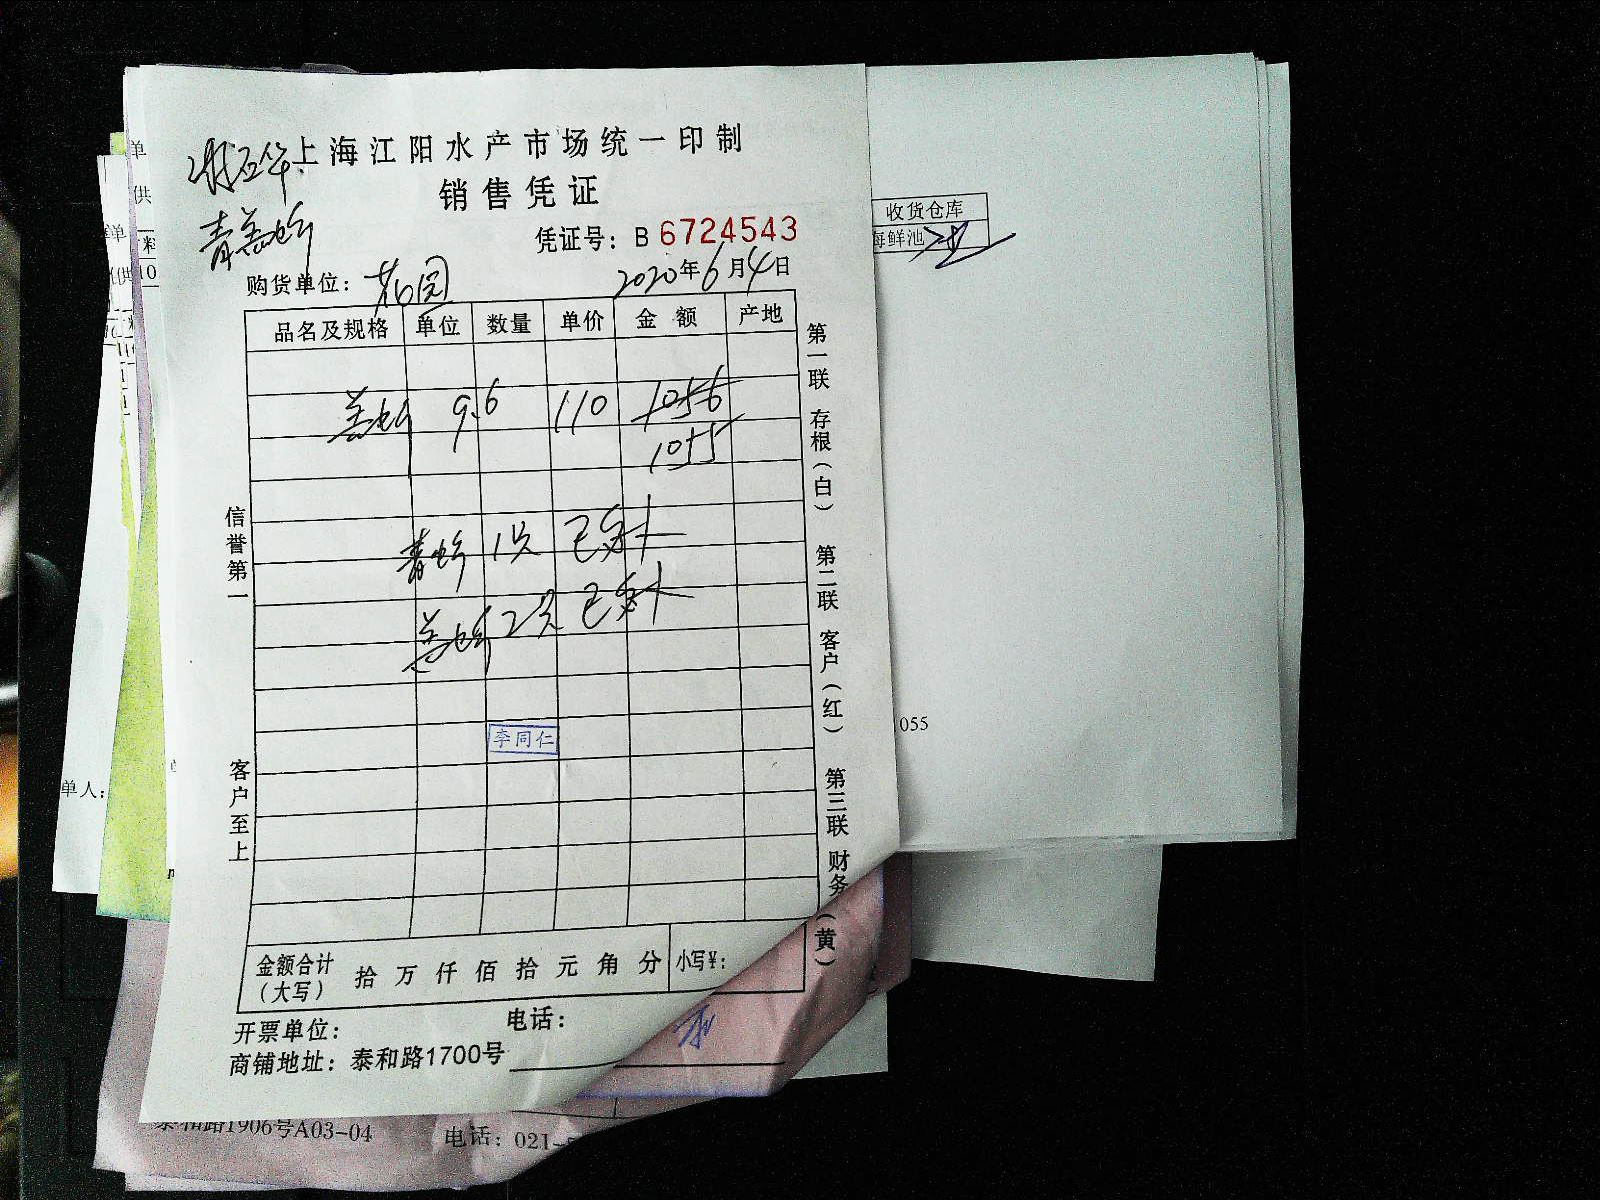 上海江阳水产市场统一印制
销售凭证
凭证号：B 6724543
购货单位：花园
2020年6月4日
品名及规格 单位 数量 单价 金额 产地
9.6 110 1056
1055
青 1只 已
2只 已
李同仁
信誉第一
客户至上
第一联 存根（白） 第二联 客户（红） 第三联 财务（黄）
金额合计（大写） 拾 万 仟 佰 拾 元 角 分 小写¥：
开票单位： 电话：
商铺地址：泰和路1700号
收货仓库
海鲜池
055
单
供
料
10
单
供
单人：
泰和路1906号A03-04 电话：021-